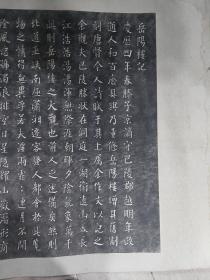 岳陽樓記
慶曆四年春滕子京謫守巴陵郡越明年政
通人和百廢具興乃重修岳陽樓增其舊制
刻唐賢今人詩賦于其上屬余作文以記之
余觀夫巴陵勝狀在洞庭一湖銜遠山吞長
江浩浩湯湯渾無際涯朝暉夕陰氣象萬千
此則岳陽樓之大觀也前人之述備矣然則
北通巫峽南極瀟湘遷客騷人多會於此覽
物之情得無異乎若夫霪雨霏霏連月不開
陰風怒號濁浪排空日星隱耀山岳潛形商